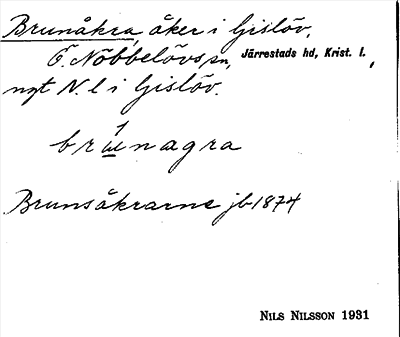 Brunåkra, åker i Gislöv,
Ö. Nöbbelövs sn, Järrestads hd, Krist. l.,
nyt N. l i Gislöv.
brunagra
Brunsåkrarne jb 1874
NILS NILSSON 1931